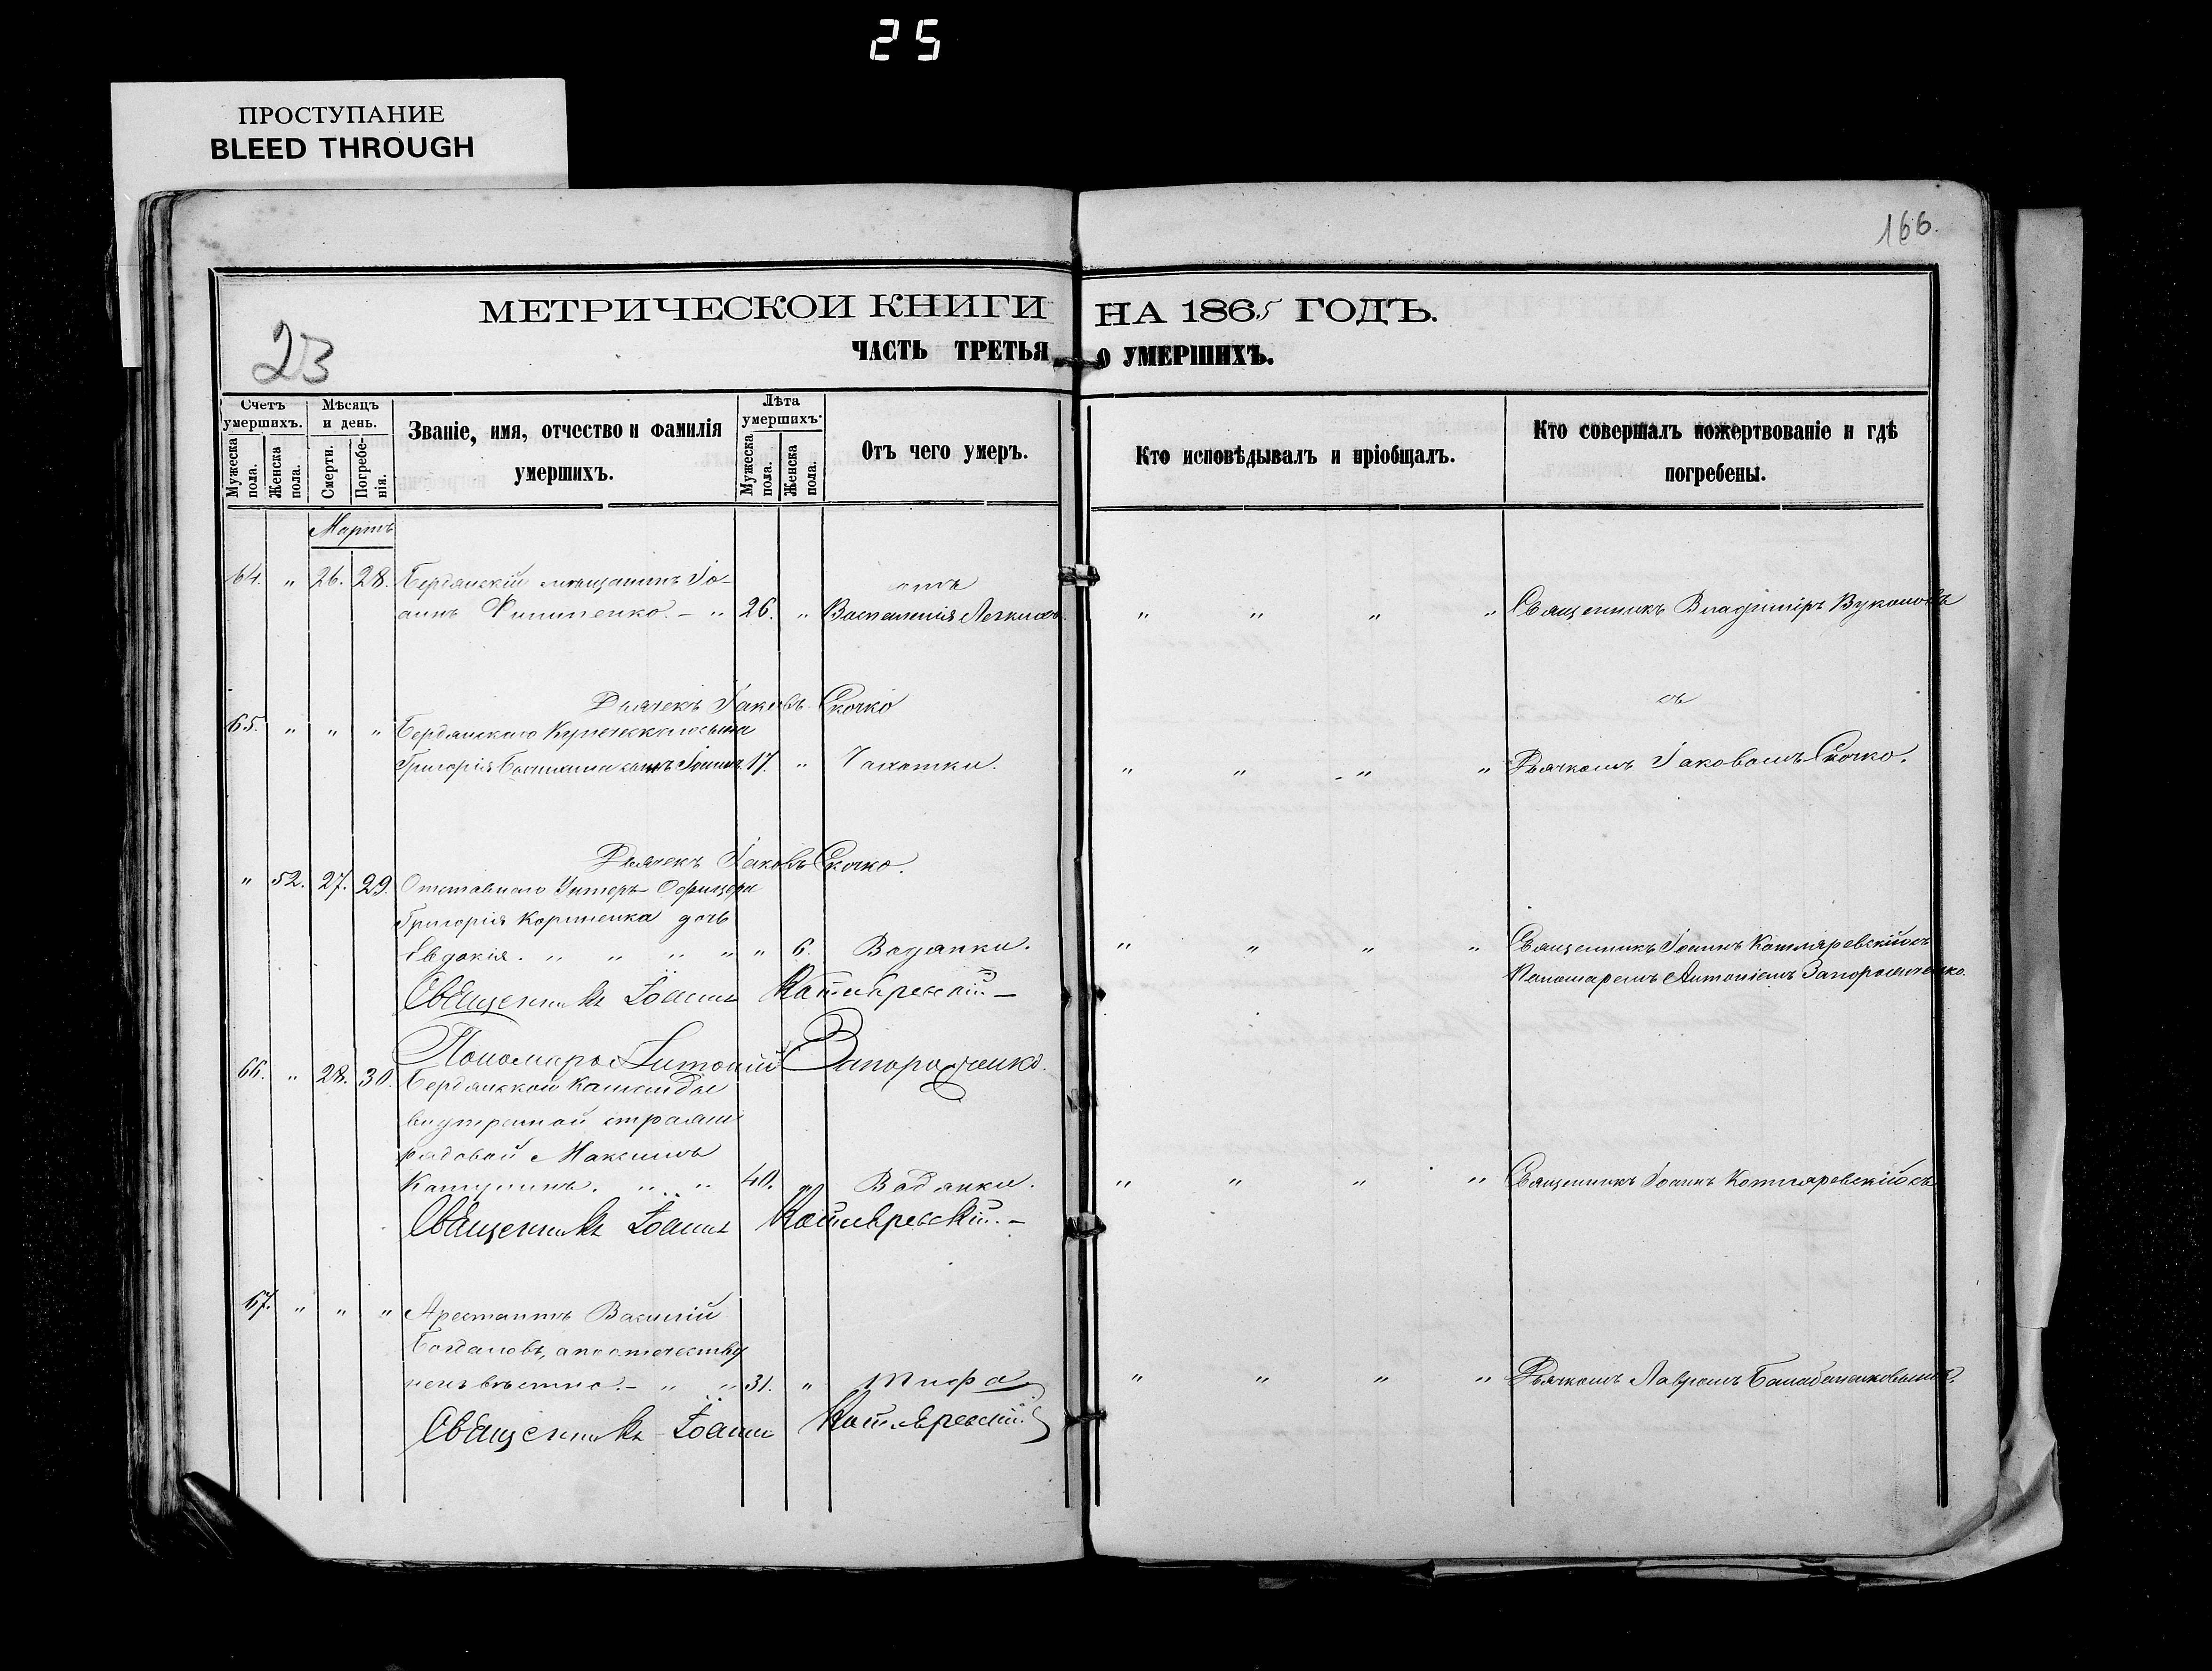 25
ПРОСТУПАНИЕ
BLEED THROUGH
166.
23
МЕТРИЧЕСКОИ КНИГИ НА 1865 ГОДЪ.
ЧАСТЬ ТРЕТЬЯ О УМЕРШИХЪ.
Счетъ умершихъ.
Мужеска пола.
Женска пола.
Мѣсяцъ и день.
Смерти.
Погребенія.
Званіе, имя, отчество и фамилія умершихъ.
Лѣта умершихъ.
Мужеска пола.
Женска пола.
Отъ чего умеръ.
Кто исповѣдывалъ и пріобщалъ.
Кто совершалъ пожертвованіе и гдѣ погребены.
Мартъ
64. " 26. 28. Бердянскій мѣщанинъ Іо- отъ
аннъ Филипенко. - " 26. " Воспаленія Легкихъ. " " " " Священникъ Владиміръ
Дьячекъ Іаковъ Скочко съ
65. " " " Бердянскаго Купеческаго сына
Григорія сынъ Іоаннъ 17. " Чахотки. " " " " Дьячкомъ Іаковомъ Скочко.
Дьячекъ Іаковъ Скочко.
" 52. 27. 29. Отставнаго Унтеръ-Офицера
Григорія Корниенка дочь
Евдокія. " " " " " 6. Водянки. " " " " Священникъ Іоаннъ Котляревскій съ
Священникъ Іоаннъ Котляревскій. - Пономаремъ Антоніемъ Запорожченко.
Пономарь Антоній Запорожченко.
66. " 28. 30. Бердянской Команды
внутренней стражи
рядовой Максимъ
" " 40. " Водянки. " " " " Священникъ Іоаннъ Котляревскій съ
Священникъ Іоаннъ Котляревскій. -
67. " " " Арестантъ Василій
Богдановъ, а по отечеству
неизвѣстно. - " " 31. " Тифа " " " " Дьячкомъ Лавромъ
Священникъ Іоаннъ Котляревскій.